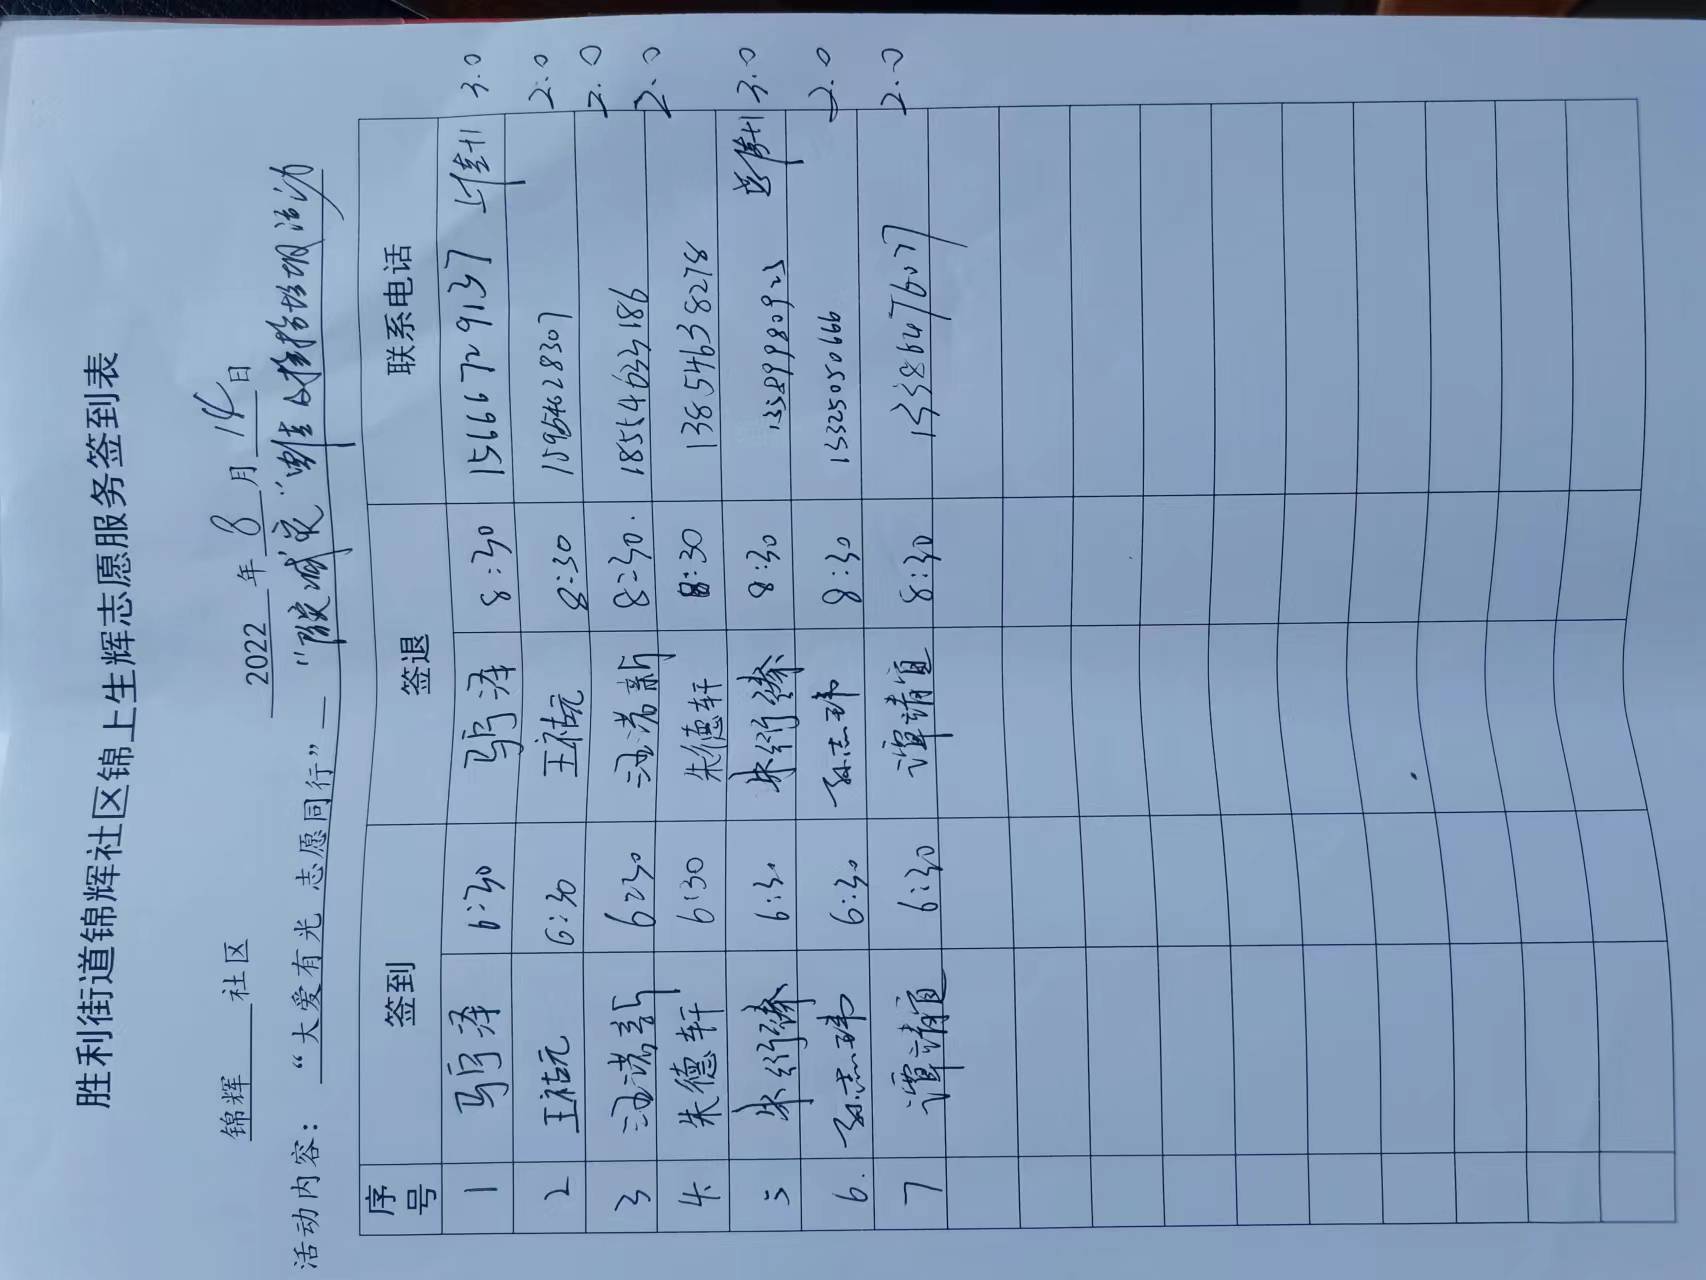 胜利街道锦辉社区锦上生辉志愿服务签到表
锦辉 社区 2022 年 8 月 14 日
活动内容: “大爱有光 志愿同行”— “降碳减灾” 活动
序号 签到 签退 联系电话
1 马宁泽 6:30 马宁泽 8:30 15666729137 +1 3.0
2 王祜元 6:30 王祜元 8:30 15954628307 2.0
3 6:30 8:30. 18554633186 2.0
4 朱德轩 6:30 朱德轩 8:30 13854638278 2.0
5 6:30 8:30 13589980923 +1 3.0
6. 孙志玮 6:30 孙志玮 8:30 13325050666 2.0
7 谭靖宜 6:30 谭靖宜 8:30 13386476077 2.0